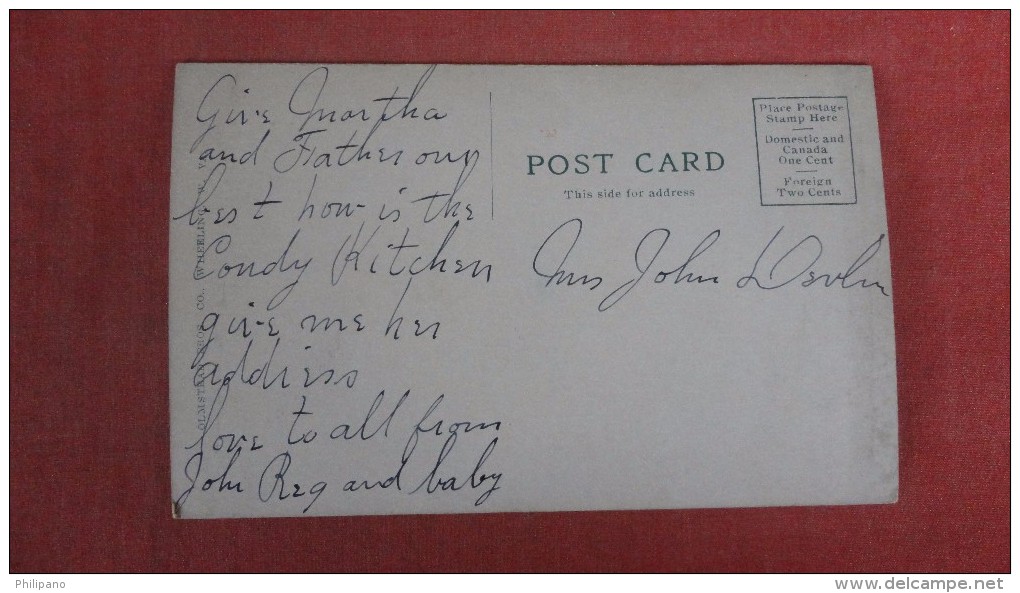 Give Martha
and Father our
best how is the
Candy Kitchen
give me her
address
love to all from
John Reg and baby
OLMSTEAD BROS. CO., WHEELING, W. V
POST CARD
This side for address
Place Postage
Stamp Here
Domestic and
Canada
One Cent
Foreign
Two Cents
Mrs John Devlin
Philipano
www.delcampe.net